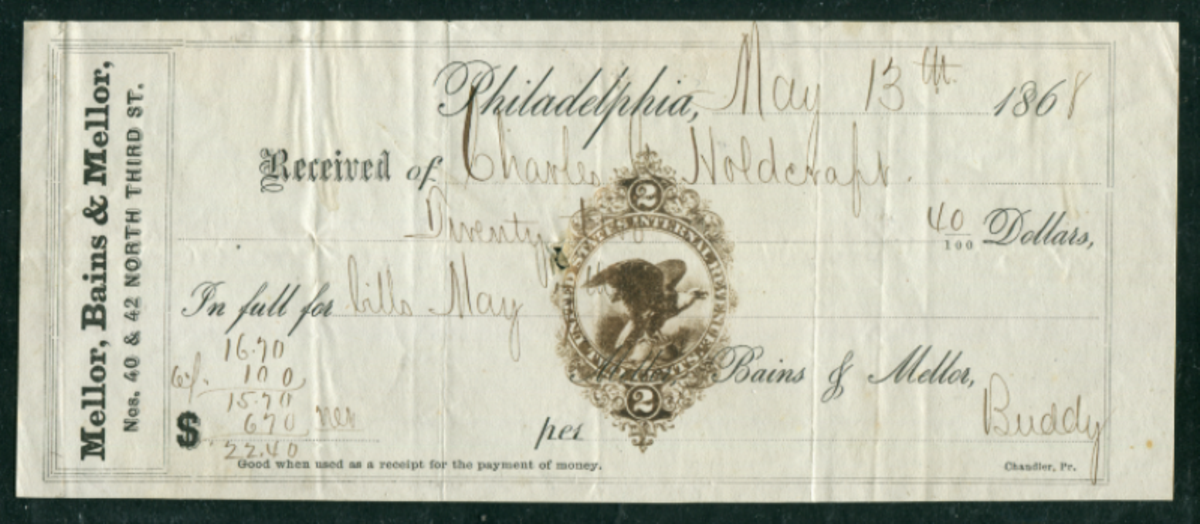 Mellor, Bains & Mellor,
Nos. 40 & 42 NORTH THIRD ST.
Philadelphia, May 13th 1868
Received of Charles Holdcraft.
Twenty 40/100 Dollars,
In full for bills May
16.70
6%. 100
15.70
$ 670 net
22.40
2
UNITED STATES INTERNAL REVENUE
2
Bains & Mellor,
per Buddy
Good when used as a receipt for the payment of money.
Chandler, Pr.